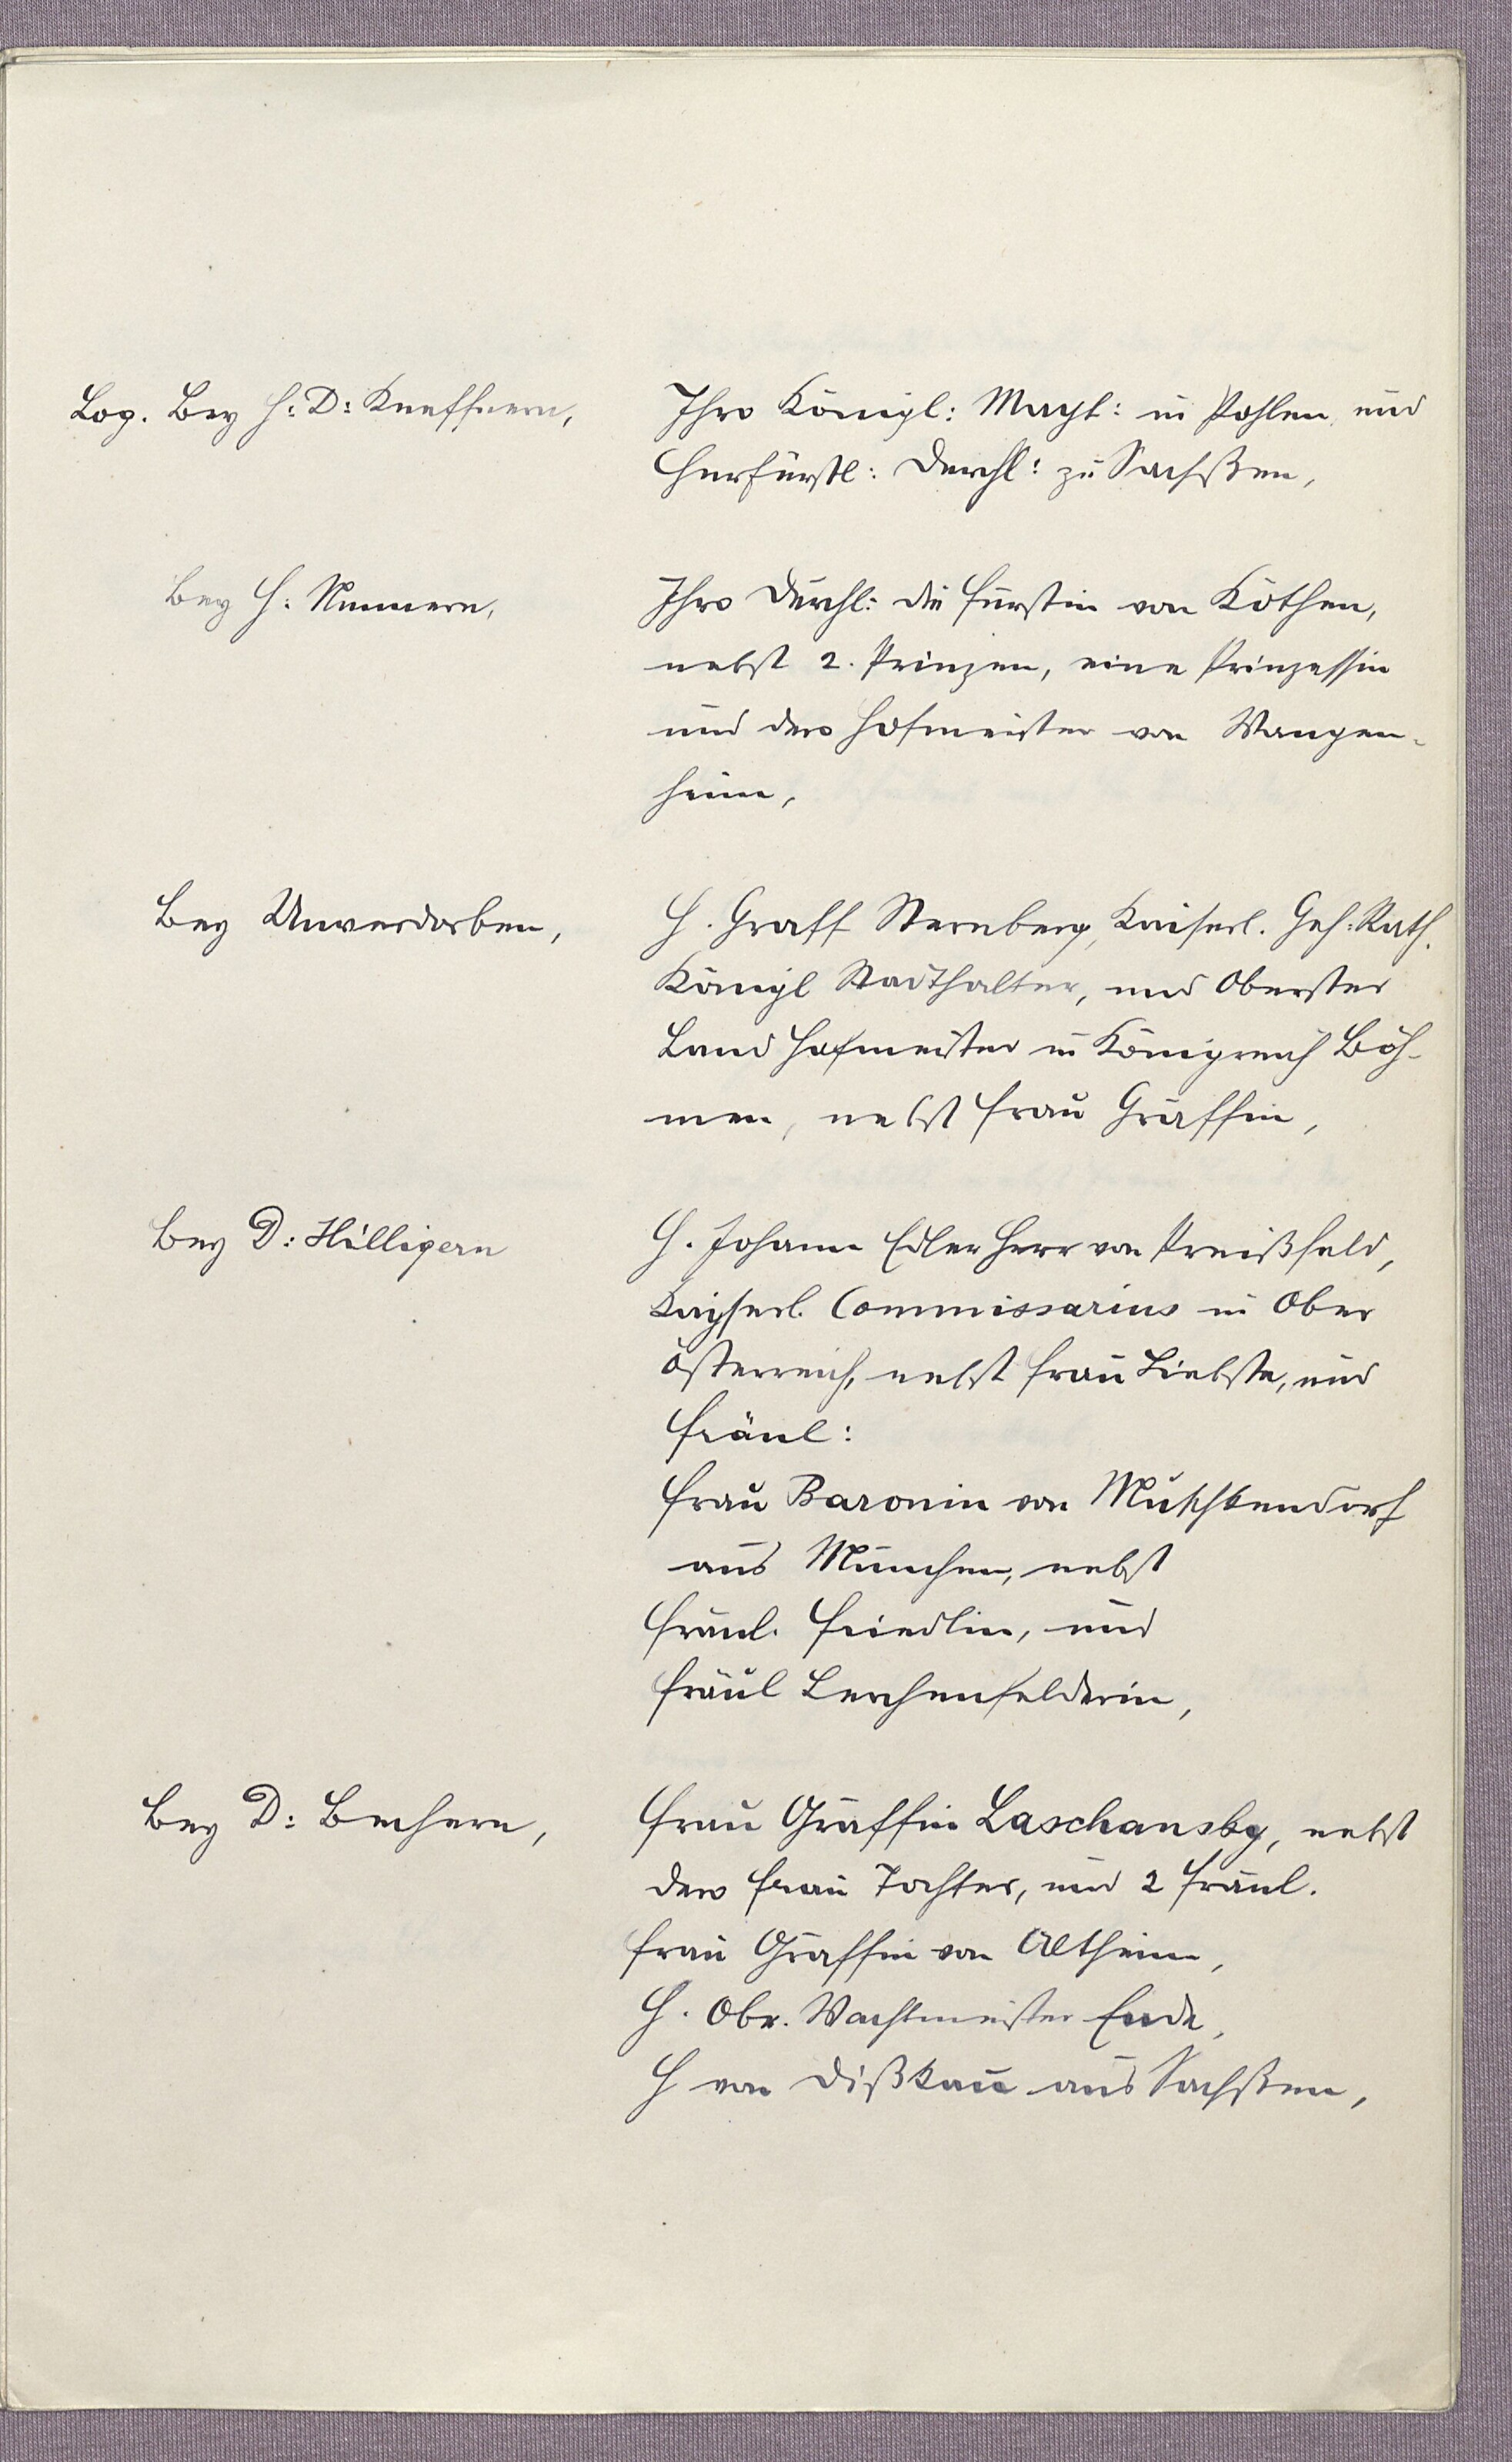 Log. Bey H: D: Kneffnern,
Ihro Königl: Mayt: in Pohlen, und
Churfürstl: Durchl: zu Sachßen,
Bey H: Nummern,
Ihro Durchl: die Fürstin von Köthen,
nebst 2. Prinzen, eine Prinzessin
und dero Hofmeister von Wangen-
heim,
Bey Unverdorben,
H. Graff Sternberg, Kaiserl. Geh: Rath.
Königl Stadthalter, und Oberster
Land Hofmeister in Königreich Böh-
men, nebst Frau Gräffin,
Bey D: Hilligern
H. Johann Edler Herr von Preißfeld,
Kayserl. Commissarius in Ober
Österreich, nebst Frau Liebste, und
Fräul:
Frau Baronin von Muschkendorf
aus München, nebst
Fräul. Friedlin, und
Fräul Lerchenfelderin,
Bey D: Bechern,
Frau Gräffin Laschansky, nebst
dero Frau Tochter, und 2 Fräul.
Frau Gräffin von Altheim,
H. Obr. Wachtmeister Ende,
H von Dißkau aus Sachßen,